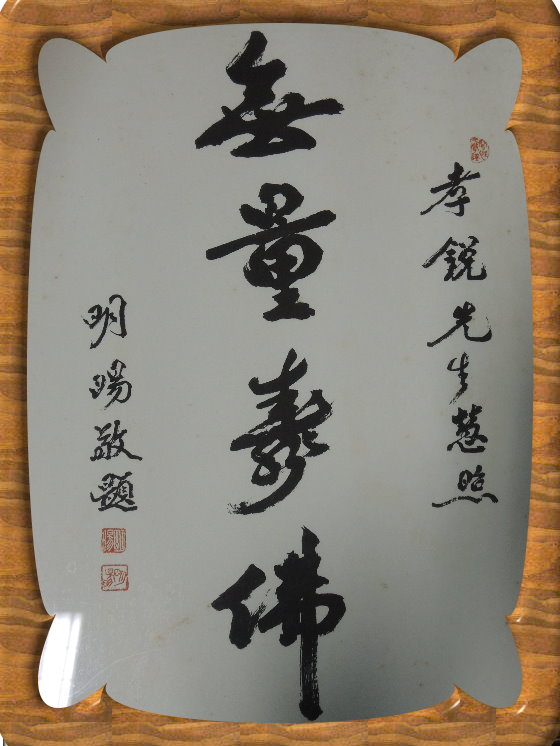 孝銳先生慧照
無量壽佛
明暘敬題